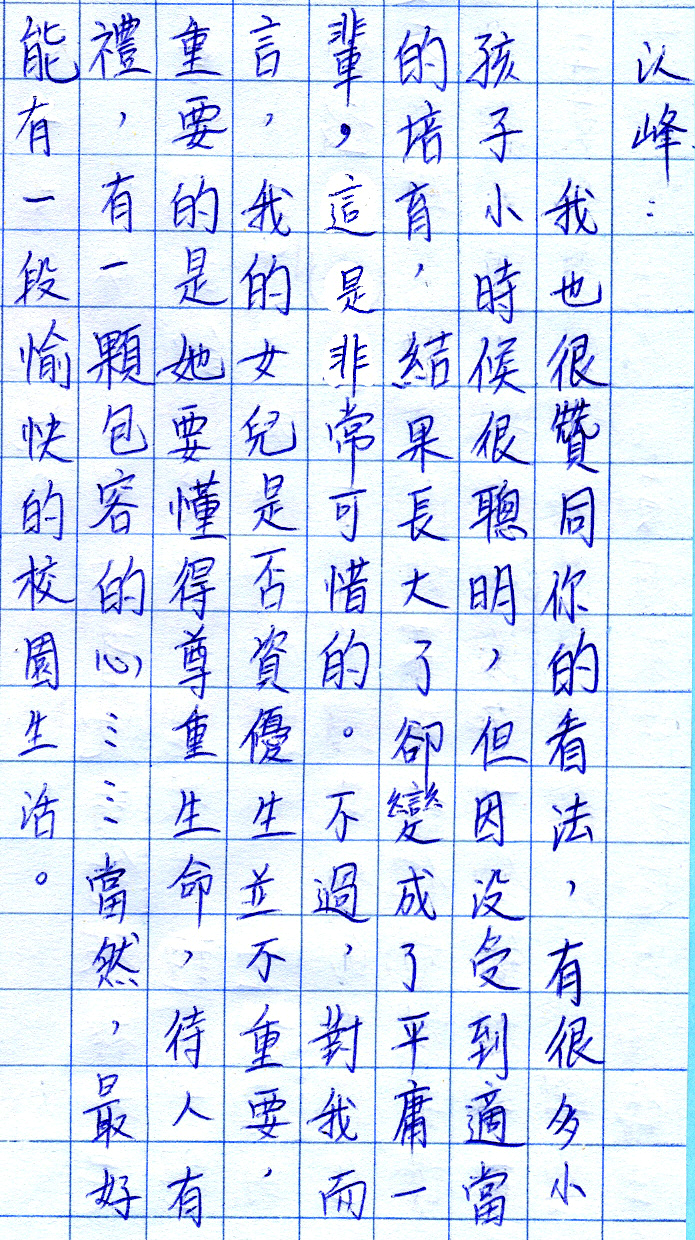 以峰：
我也很贊同你的看法，有很多小
孩子小時候很聰明，但因沒受到適當
的培育，結果長大了卻變成了平庸一
輩，這是非常可惜的。不過，對我而
言，我的女兒是否資優生並不重要，
重要的是她要懂得尊重生命，待人有
禮，有一顆包容的心……當然，最好
能有一段愉快的校園生活。